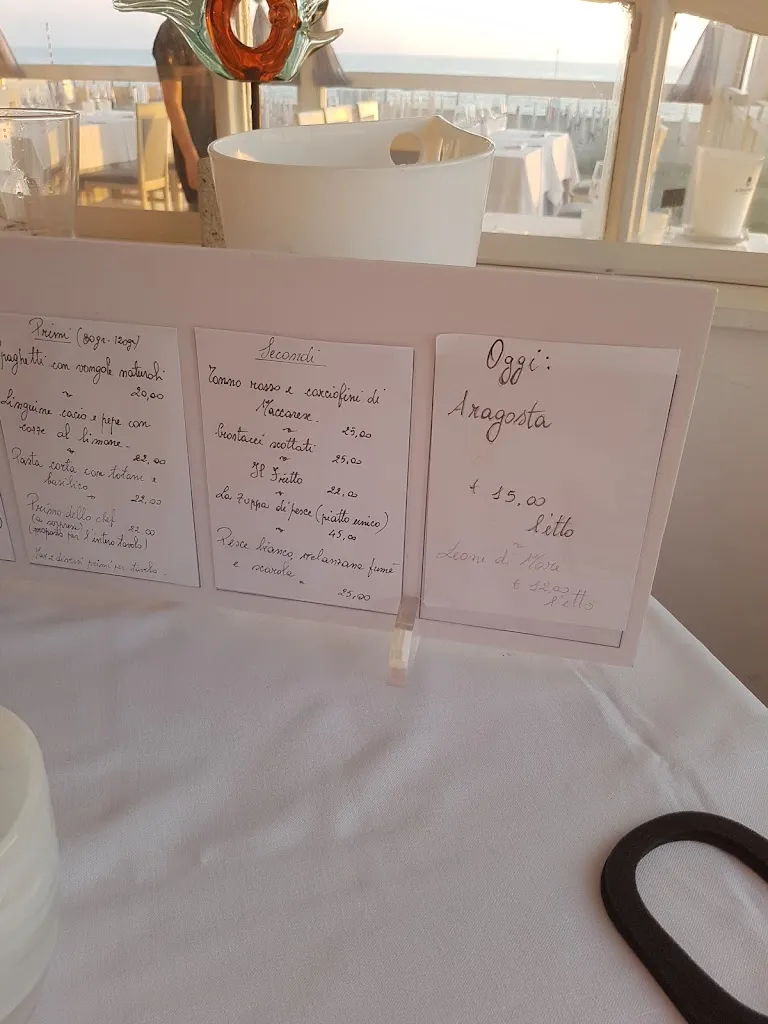 Primi (80gr-120gr)
Spaghetti con vongole naturali
20,00
~
Linguine cacio e pepe con
cozze al limone.
22,00
~
Pasta corta con totano e
basilico
22,00
~
Primo dello chef
22,00
(a sorpresa)
(proposto per l'intero tavolo)
Max 2 diversi primi per tavolo.
Secondi
Tonno rosso e carciofini di
Maccarese.
25,00
~
Crostacei scottati
25,00
~
Il Fritto
22,00
~
La zuppa di pesce (piatto unico)
45,00
~
Pesce bianco, melanzana fumé
e scarola
25,00
Oggi:
Aragosta
€ 15,00
l'etto
~
Leone di Mare
€ 12,00
l'etto